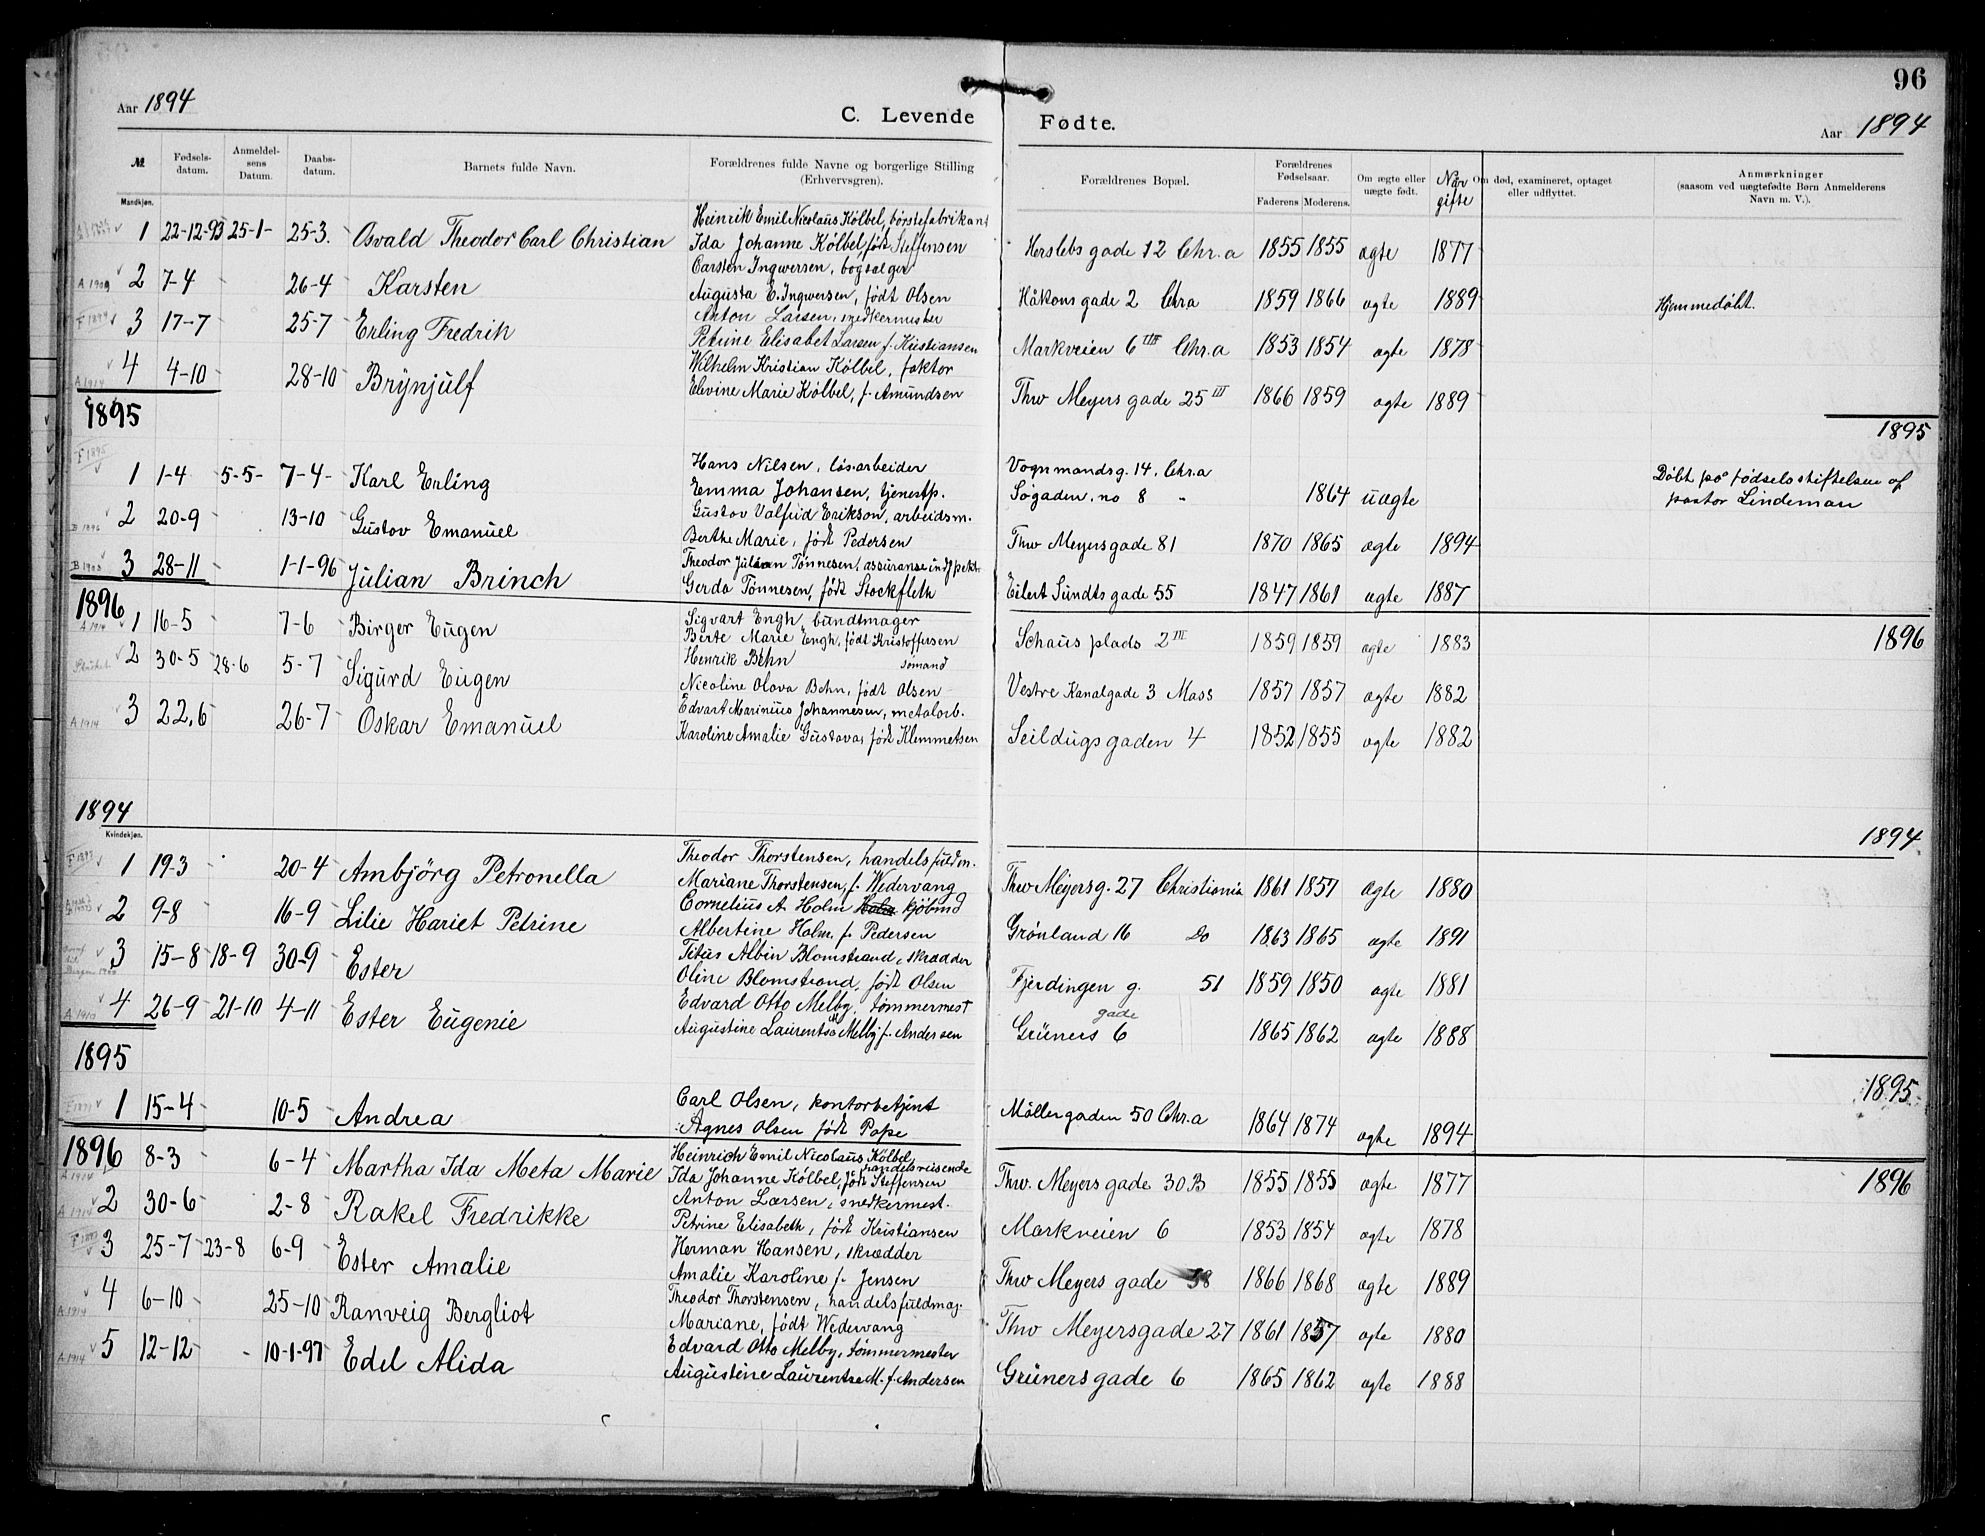 96
Aar 1894
C. Levende Fødte.
Aar 1894
№
Fødsels-datum.
Anmeldel-sens Datum.
Daabs-datum.
Barnets fulde Navn.
Forældrenes fulde Navne og borgerlige Stilling (Erhvervsgren).
Forældrenes Bopæl.
Forældrenes Fødselsaar.
Faderens
Moderens.
Om ægte eller uægte født.
Når gifte
Om død, examineret, optaget eller udflyttet.
Anmærkninger (saasom ved uægtefødte Børn Anmelderens Navn m. V.).
Mandkjøn.
1 22-12-93 25-1- 25-3. Osvald Theodor Carl Christian
Heinrik Emil Nicolaus Kölbel, börstefabrikant
Ida Johanne Kölbel, født Steffensen
Herslebs gade 12 Chr.a 1855 1855 ægte 1877
A 1909 2 7-4 26-4 Karsten
Carsten Ingwersen, bogsælger
Augusta E. Ingwersen, født Olsen
Håkons gade 2 Chr.a 1859 1866 ægte 1889 Hjemmedøbt.
3 17-7 25-7 Erling Fredrik
Anton Larsen, snedkermester
Petrine Elisabet Larsen f. Kristiansen
Markveien 6 III Chr.a 1853 1854 ægte 1878
A 1914 4 4-10 28-10 Brynjulf
Wilhelm Kristian Kölbel, faktor
Elevine Marie Kölbel, f. Amundsen
Thv Meyers gade 25 III 1866 1859 ægte 1889
1895
1895
F 1895 1 1-4 5-5- 7-4- Karl Erling
Hans Nilsen, løsarbeider
Emma Johansen, tjenestp.
Vognmandsg. 14. Chr.a
Søgaden. no 8 " 1864 uægte
Døbt på fødselsstiftelsen af
pastor Lindeman
B 1896 2 20-9 13-10 Gustov Emanuel
Gustov Valfrid Erikson, arbeidsm.
Berthe Marie, født Pedersen
Thv Meyersgade 81 1870 1865 ægte 1894
B 1903 3 28-11 1-1-96 Julian Brinch
Theodor Julian Tönnesen, assuranseindspekt.
Gerda Tönnesen, født Stockfleth
Eilert Sundts gade 55 1847 1861 ægte 1887
1896
1896
A 1914 1 16-5 7-6 Birger Eugen
Sigvart Engh, bundtmager
Berte Marie Engh, født Kristoffersen
Schaus plads 2 III 1859 1859 ægte 1883
2 30-5 28-6 5-7 Sigurd Eugen
Henrik Behn sømand
Nicoline Olava Behn, født Olsen
Vestre Kanalgade 3 Moss 1857 1857 ægte 1882
A 1914 3 22.6 26-7 Oskar Emanuel
Edvart Marinius Johannesen, metalarb.
Karoline Amalie Gustava, født Klemmetsen
Seildugs gaden 4 1852 1855 ægte 1882
1894
1894
Kvindekjøn.
1 19-3 20-4 Ambjörg Petronella
Theodor Thorstensen, handelsfuldm.
Mariane Thorstensen, f. Wedervang
Thv Meyersg. 27 Christiania 1861 1857 ægte 1880
2 9-8 16-9 Lilie Hariet Petrine
Cornelius A. Holm kjöbmd
Albertine Holm, f. Pedersen
Grønland 16 Do 1863 1865 ægte 1891
3 15-8 18-9 30-9 Ester
Titus Albin Blomstrand, skrædder
Oline Blomstrand, født Olsen
Fjerdingen g. 51 1859 1850 ægte 1881
A 1910 4 26-9 21-10 4-11 Ester Eugenie
Edvard Otto Melby, tømmermest
Augustine Laurentse Melby f. Andersen
Grüners gade 6 1865 1862 ægte 1888
1895
1895
1 15-4 10-5 Andrea
Carl Olsen, kontorbetjent
Agnes Olsen født Pape
Møllergaden 50 Chr.a 1864 1874 ægte 1894
1896
1896
A 1914 8-3 6-4 Martha Ida Meta Marie
Heinrich Emil Nicolaus Kölbel, handelsreisende
Ida Johanne Kölbel, født Steffensen
Thv. Meyers gade 30 B 1855 1855 ægte 1877
A 1914 2 30-6 2-8 Rakel Fredrikke
Anton Larsen, snedkermest.
Petrine Elisabeth, født Kristiansen
Markveien 6 1853 1854 ægte 1878
3 25-7 23-8 6-9 Ester Amalie
Herman Hansen, skrædder
Amalie Karoline f. Jensen
Thv Meyers gade 58 1866 1868 ægte 1889
A 1914 4 6-10 25-10 Ranveig Bergliot
Theodor Thorstensen, handelsfuldmæg.
Mariane, født Wedervang
Thv Meyersgade 27 1861 1857 ægte 1880
A 1914 5 12-12 10-1-97 Edel Alida
Edvard Otto Melby, tømmermester
Augustine Laurentse M. f. Andersen
Grüners gade 6 1865 1862 ægte 1888